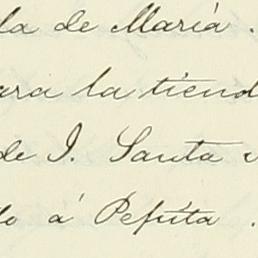 la de María.
ara la tiend
de I. Santa
do á Pepita.